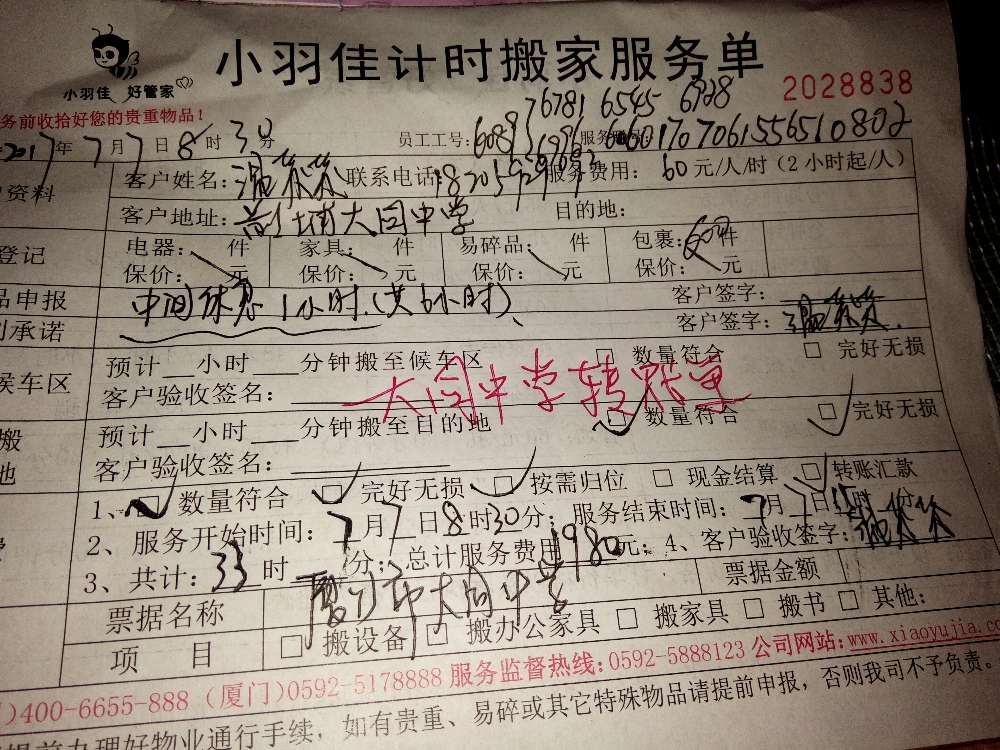 小羽佳计时搬家服务单
小羽佳 好管家
2028838
务前收拾好您的贵重物品！
76781 6545 6928
2017年7月7日8时30分 员工工号：
客户姓名： 联系电话： 服务费用：60元/人/时（2小时起/人）
资料
客户地址：大同中学 目的地：
登记
电器： 件 家具： 件 易碎品： 件 包裹： 件
保价： 元 保价： 元 保价： 元 保价： 元
品申报
中间休息1小时.(共6小时)
客户签字：
承诺
客户签字：
预计__小时___分钟搬至候车区 □ 数量符合 □ 完好无损
候车区
客户验收签名：
大同中学转账单
预计__小时___分钟搬至目的地 □ 数量符合 □ 完好无损
搬
地
客户验收签名：
1、□ 数量符合 □ 完好无损 □ 按需归位 □ 现金结算 □ 转账汇款
2、服务开始时间：7月7日8时30分；服务结束时间：7月7日15时 分
3、共计：33时 分；总计服务费用1980元；4、客户验收签字：
票据名称 厦门市大同中学 票据金额
项 目 □ 搬设备 □ 搬办公家具 □ 搬家具 □ 搬书 □ 其他：
)400-6655-888 (厦门)0592-5178888 服务监督热线：0592-5888123 公司网站：www.xiaoyujia.c
提前办理好物业通行手续，如有贵重、易碎或其它特殊物品请提前申报，否则我司不予负责。